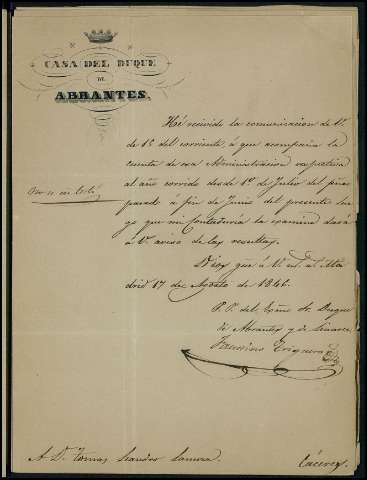 CASA DEL DUQUE
DE
ABRANTES.
Hé recivido la comunicacion de V.
de 1º del corriente, á que acompaña la
cuenta de esa Administracion respectiva
al año corrido desde 1º de Julio del pmo
pasado á fin de Junio del presente, lue
go que mi contaduría la examine dará
á V. aviso de las resultas.
Dios gue á V. m. a. Ma
drid 17 de Agosto de 1846.
P. P. del Exmo Sr. Duque
de Abrantes y de Linares
Faustino
A. D. Tomas Leandro
Cáceres.